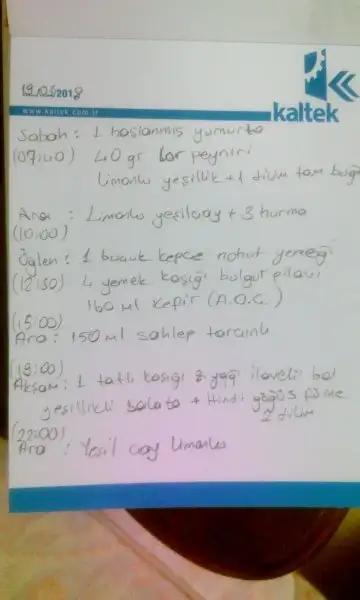 kaltek
www.kaltek.com.tr
Sabah : 1 haşlanmış yumurta
(07:40) 40 gr lor peyniri
Limonlu yeşillik + 1 dilim tam buğd
Ara : Limonlu yeşilçay + 3 hurma
(10:00)
Öğlen : 1 buçuk kepçe nohut yemeği
(12:30) 4 yemek kaşığı bulgur pilavı
160 ml kefir (A.O.Ç.)
(15:00)
Ara : 150 ml sahlep tarçınlı
(18:00)
Akşam : 1 tatlı kaşığı z.yağı ilaveli bol
yeşillikli salata + Hindi göğüs füme
2 dilim
(22:00)
Ara : Yeşil çay limonlu